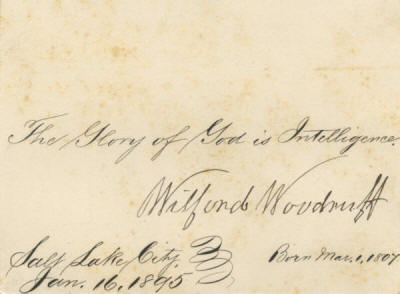 The Glory of God is Intelligence.
Wilford Woodruff
Salt Lake City. Born Mar. 1, 1807
Jan. 16, 1895